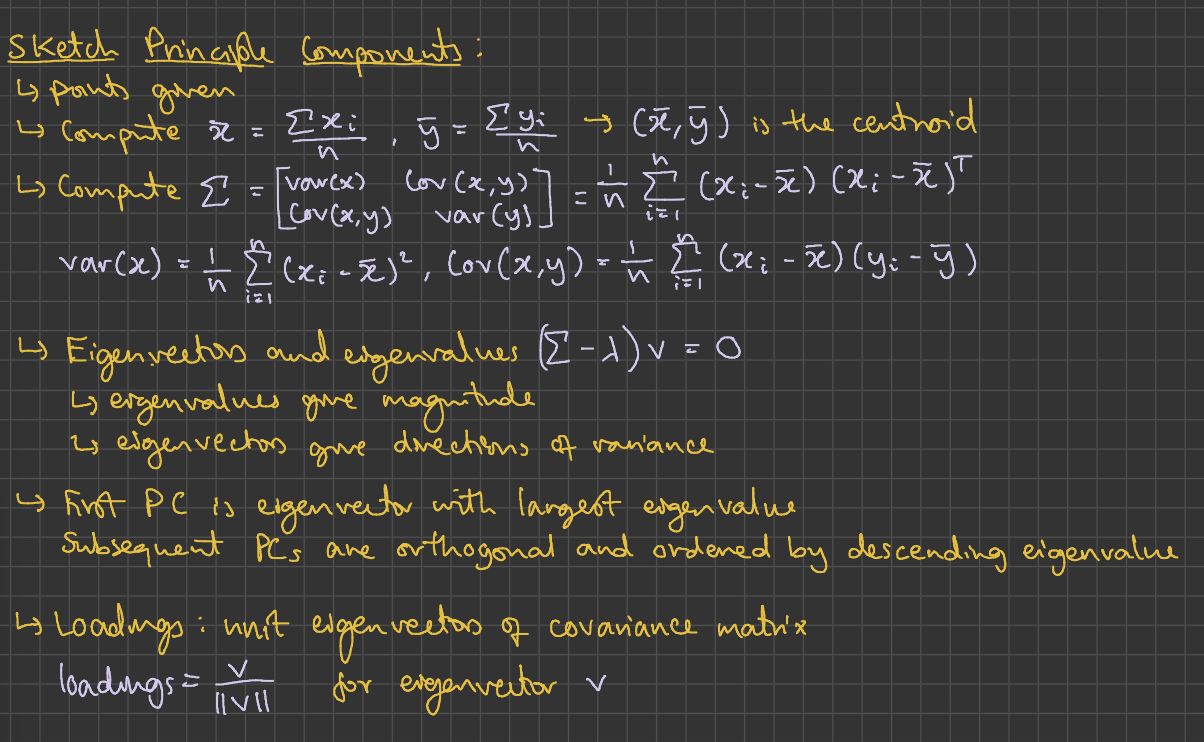 Sketch Principle Components:
↳ points given
↳ Compute x̄ = Σxᵢ/n , ȳ = Σyᵢ/n → (x̄, ȳ) is the centroid
↳ Compute Σ = [var(x) Cov(x,y); Cov(x,y) var(y)] = 1/n Σⁿᵢ₌₁ (xᵢ - x̄)(xᵢ - x̄)ᵀ
var(x) = 1/n Σⁿᵢ₌₁ (xᵢ - x̄)², Cov(x,y) = 1/n Σⁿᵢ₌₁ (xᵢ - x̄)(yᵢ - ȳ)
↳ Eigenvectors and eigenvalues (Σ - λ)v = 0
↳ eigenvalues give magnitude
↳ eigenvectors give directions of variance
↳ First PC is eigenvector with largest eigenvalue
Subsequent PCs are orthogonal and ordered by descending eigenvalue
↳ Loadings: unit eigenvectors of covariance matrix
loadings = v/||v|| for eigenvector v